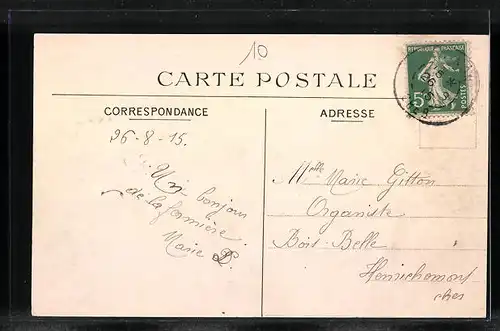 10
CARTE POSTALE
REPUBLIQUE FRANÇAISE
5c
POSTES
CORRESPONDANCE
ADRESSE
26-8-15.
Un bonjour
de la fermière.
Marie L.
Melle Marie Gitton
Organiste
Bois-Belle
Henrichemont
Cher